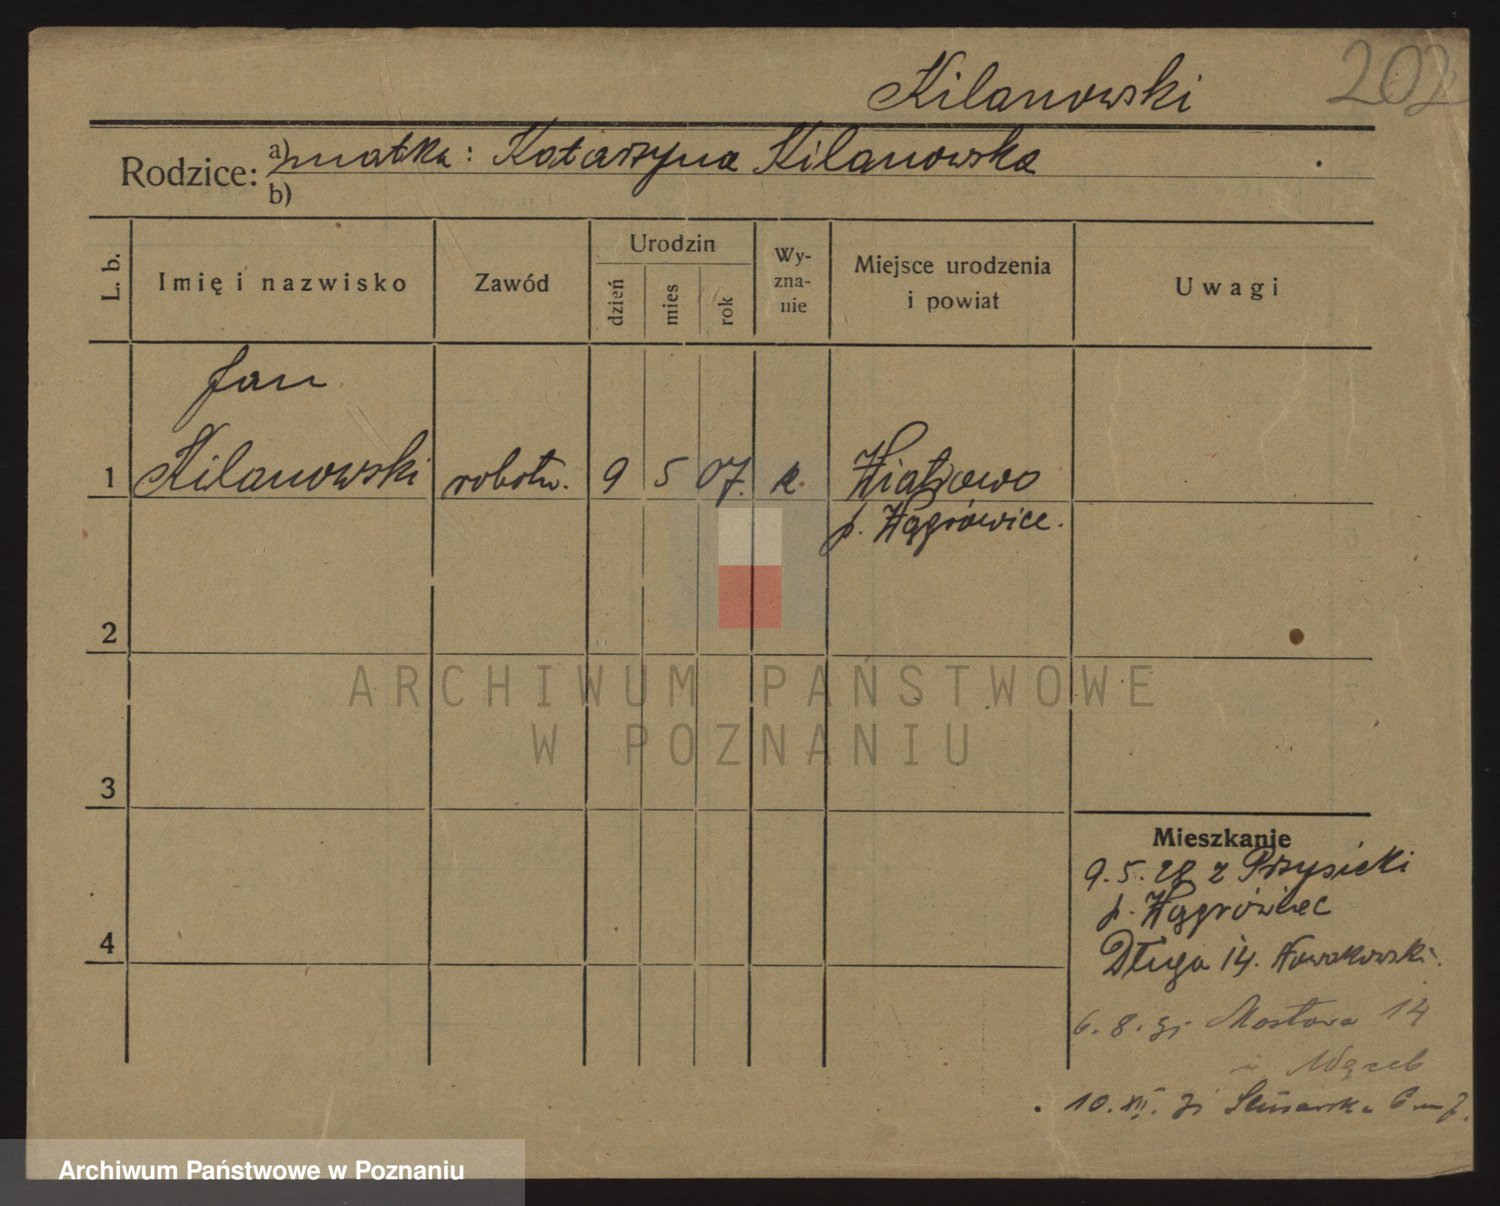 Kilanowski
202
Rodzice: a) matka: Katarzyna Kilanowska
b)
L. b. Imię i nazwisko Zawód Urodzin dzień mies rok Wy-zna-nie Miejsce urodzenia i powiat Uwagi
Jan
1 Kilanowski robotn. 9 5 07. k. Wiatrowo
p. Wągrowice.
2
ARCHIWUM PAŃSTWOWE
W POZNANIU
3
Mieszkanie
9.5.28 z Przysieki
p. Wągrówiec
4
Długa 14. Nowakowski.
6.8.31 Mostowa 14
10.XII.31 6 m 7.
Archiwum Państwowe w Poznaniu